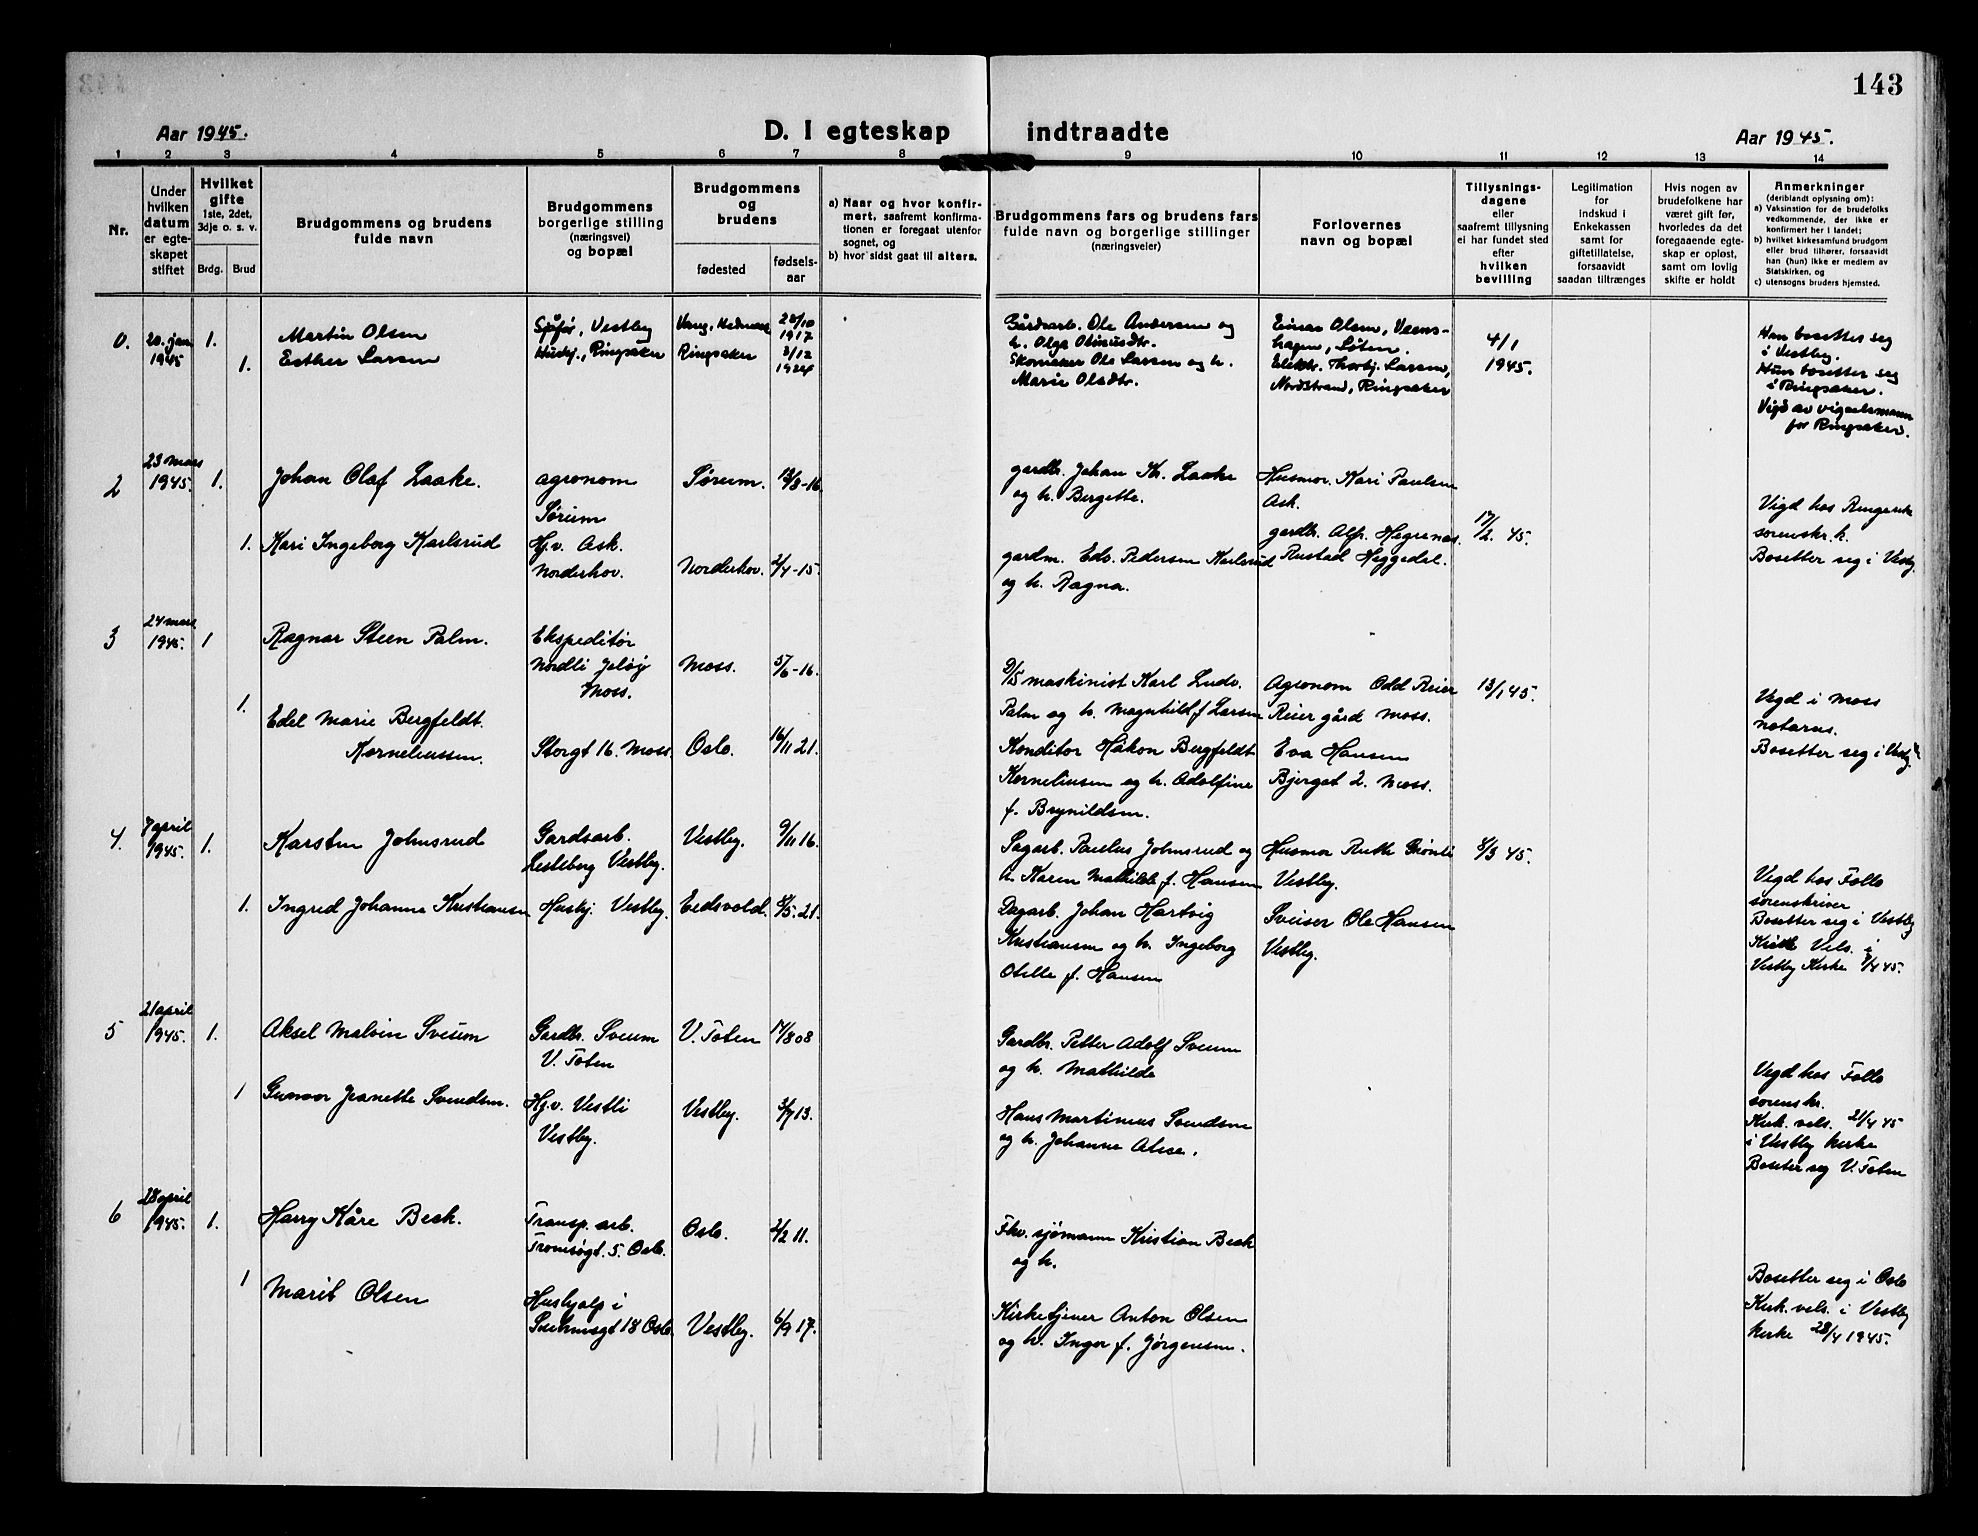 143
Aar 1945. D. I egteskap indtraadte Aar 1945.
1 2 3 4 5 6 7 8 9 10 11 12 13 14
Nr.
Under
hvilken
datum
er egte-
skapet
stiftet
Hvilket
gifte
1ste, 2det,
3dje o. s. v.
Brdg. Brud
Brudgommens og brudens
fulde navn
Brudgommens
borgerlige stilling
(næringsvei)
og bopæl
Brudgommens
og
brudens
fødested
fødsels-
aar
a) Naar og hvor konfir-
mert, saafremt konfirma-
tionen er foregaat utenfor
sognet, og
b) hvor sidst gaat til alters.
Brudgommens fars og brudens fars
fulde navn og borgerlige stillinger
(næringsveier)
Forlovernes
navn og bopæl
Tillysnings-
dagene
eller
saafremt tillysning
ei har fundet sted
efter
hvilken
bevilling
Legitimation
for
indskud i
Enkekassen
samt for
giftetillatelse,
forsaavidt
saadan tiltrænges
Hvis nogen av
brudefolkene har
været gift før,
hvorledes da det
foregaaende egte-
skap er opløst,
samt om lovlig
skifte er holdt
Anmerkninger
(deriblandt oplysning om):
a) Vaksinstion for de brudefolks
vedkommende, der ikke er
konfirmert her i landet;
b) hvilket kirkesamfund brudgom
eller brud tilhører, forsaavidt
han (hun) ikke er medlem av
Statskirken, og
c) utensogns bruders hjemsted.
0. 20. jan 1945 1. Martin Olsen
Sjåfør, Vestby
Vang, Hedmark 28/10 1917
1. Esther Larsen
Hushj., Ringsaker
Ringsaker 3/12 1924
Gårdsarb. Ole Andersen og
h. Olga Otinusdtr.
Skomaker Ole Larsen og h.
Marie Olsdtr.
Einar Olsen,
Løten.
Elektr. Thorbj. Larsen,
Nordstrand, Ringsaker
4/1
1945.
Han bosetter seg
i Vestby.
Hun bosetter seg
i Ringsaker.
Vigd av vigselsmann
for Ringsaker.
2 23 mars 1945. 1. Johan Olaf Laake.
agronom
Sørum
Sørum. 13/8-16
1. Kari Ingeborg Karlsrud
Hj.v. Ask.
Norderhov.
Norderhov. 2/4-15.
gardbr. Johan Kr. Laake
og h. Bergette.
gardm. Edv. Pedersen Karlsrud
og h. Ragna.
Husmor. Kari Paulsen
Ask.
gardbr. Alf. Hegrenæs.
Rustad Heggedal.
17/2 45.
Vigd hos Ringerik
sorenskr.h.
Bosetter seg i Vestby.
3 24 mars 1945. 1 Ragnar Steen Palm.
Ekspeditør
Nordli Jeløy
Moss.
Moss. 5/6-16.
1. Edel Marie Bergfeldt.
Korneliussen.
Storgt 16. Moss.
Oslo. 16/11 21.
D/S maskinist Karl Ludv.
Palm og h. Magnhild f. Larsen
Konditor Håkon Bergfeldt
Korneliusen og h. Adolfine
f. Brynildsen.
Agronom Odd Reier
Reier gård Moss.
Eva Hansen
Bjerget 2. Moss.
13/1 45.
Vigd i Moss
notarus.
Bosetter seg i Vestby.
4. 7 april 1945. 1. Karsten Johnsrud
Gardsarb.
Vestby.
Vestby. 9/11 16.
1. Ingrid Johanne Kristiansen
Hushj. Vestby.
Eidsvold. 8/5. 21.
Sagarb. Paulus Johnsrud og
h. Karen Mathilde f. Hansen
Dagarb. Johan Hartvig
Kristiansen og h. Ingeborg
Otelie f. Hansen
Husmor Ruth Grønli
Vestby.
Sveiser Ole Hansen
Vestby.
8/3 45.
Vigd hos Follo
sorenskriver
Bosetter seg i Vestby
Kirk Vels. i
Vestby Kirke 8/4 45.
5 21 april 1945. 1. Aksel Malvin Sveum
Gardbr. Sveum
V. Toten
V. Toten 14/8 08
1 Gunvor Jeanette Svendsen.
Hj.v. Vestli
Vestby.
Vestby. 3/7 13.
Gardbr. Petter Adolf Sveum
og h. Mathilde
Hans Martinius Svendsen
og h. Johanne Alise.
Vigd hos Follo
sorenskr.
Kirk. vels. 21/4 45
i Vestby kirke
Bosetter seg V. Toten
6 28 april 1945. 1. Harry Kåre Beck.
Transp. arb.
Tromsøgt. 5. Oslo.
Oslo. 2/2 11.
1 Marit Olsen
Hushjelp i
18 Oslo.
Vestby. 6/9 17.
Fhv. sjømann Kristian Beck
og h.
Kirketjener Anton Olsen
og h. Inger f. Jørgensen.
Bosetter seg i Oslo
Kirk. vels. i Vestby
kirke 28/4 1945.